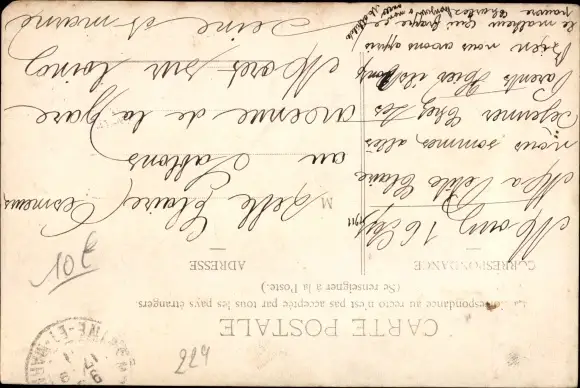 CARTE POSTALE
La Correspondance au recto n'est pas acceptée par tous les pays étrangers.
(Se renseigner à la Poste.)
CORRESPONDANCE
ADRESSE
1911
Ma petite Claire
nous sommes allés
déjeuner chez les
Parents
Bien nous avons appris
le malheur qui frappe ce
pauvre Charles
M
elle Claire
au Sablons
avenue de la Gare
Moret sur Loing
Seine et marne
10 E
224